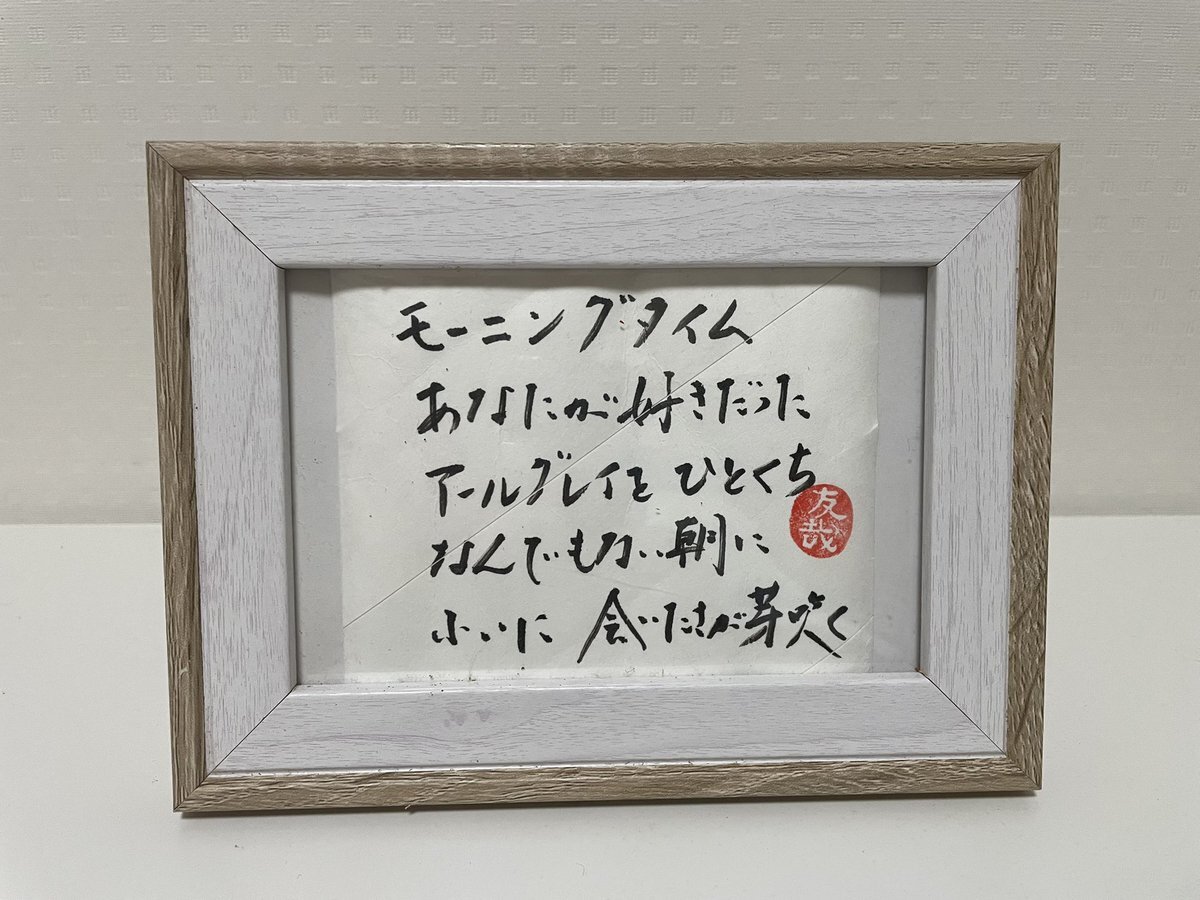 モーニングタイム
あなたが好きだった
アールグレイを ひとくち
なんでもない朝に
ふいに 会いたさが芽吹く
友哉